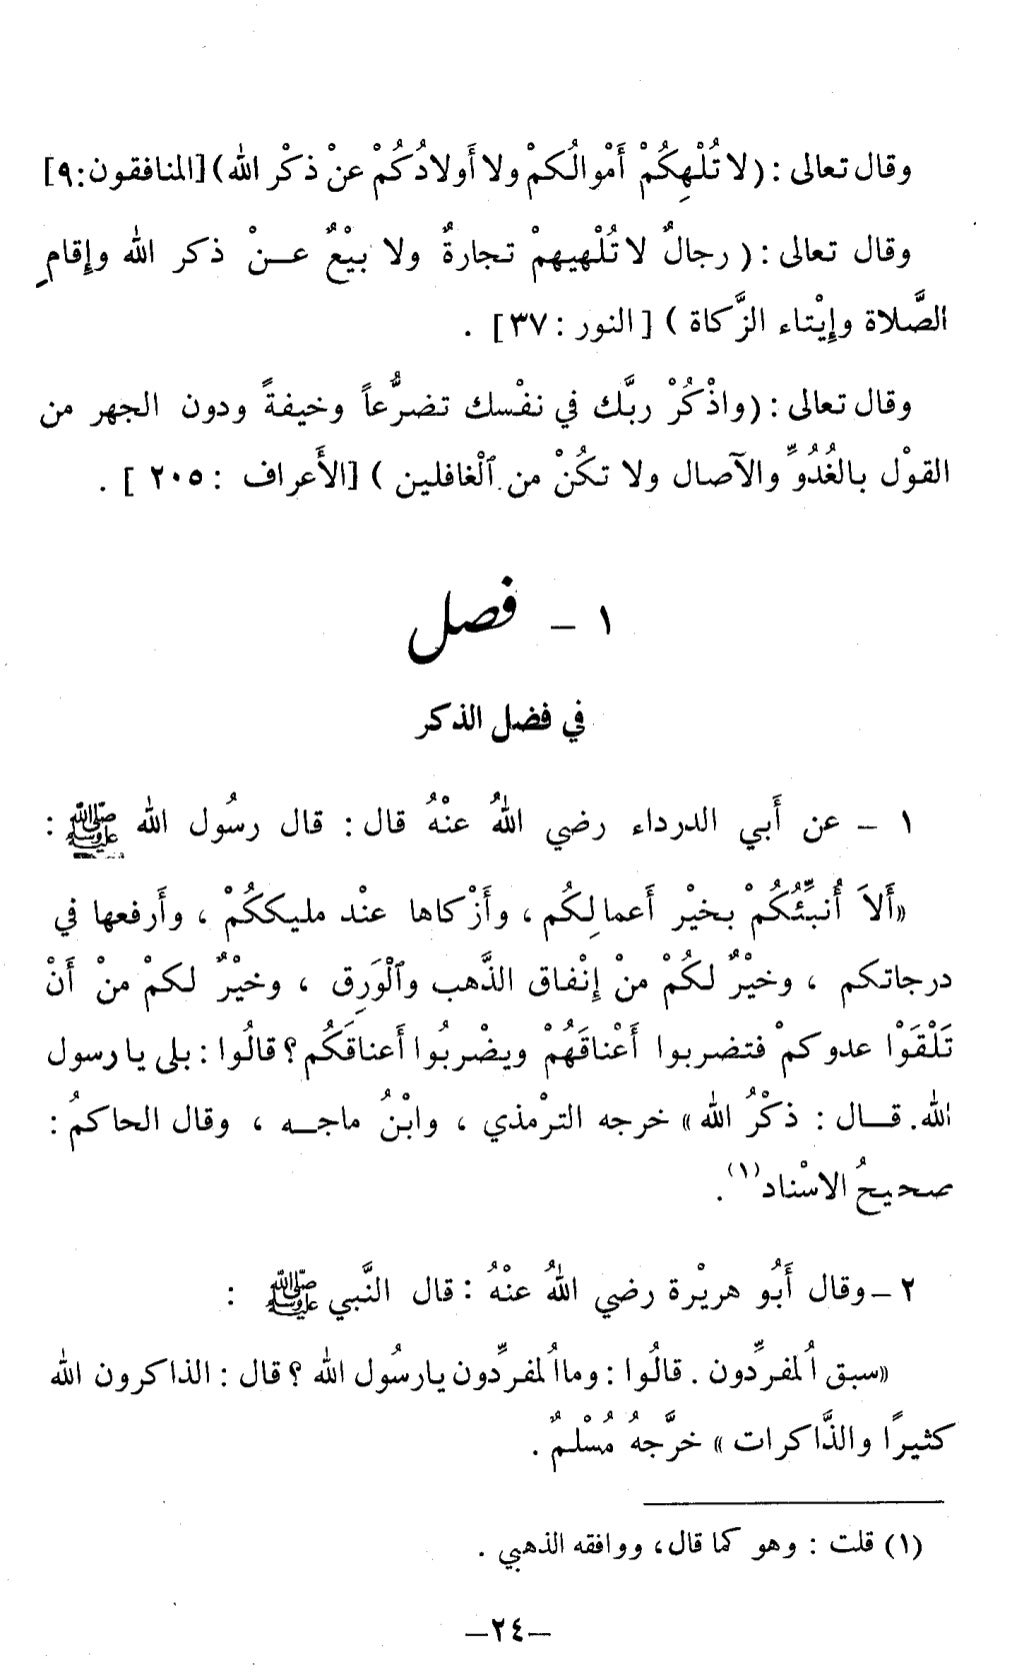 وقال تعالى : (لا تُلْهِكُمْ أَمْوالُكمْ ولا أَولادُكُمْ عنْ ذكْر الله) [المنافقون:٩]
وقال تعالى : ( رجالٌ لا تُلْهيهمْ تجارةٌ ولا بيْعٌ عــنْ ذكر الله وإقامِ
الصَّلاة وإيْتاء الزَّكاة ) [ النور : ٣٧] .
وقال تعالى : (واذْكُرْ ربَّك في نفْسك تضرُّعاً وخيفةً ودون الجهر من
القوْل بالغُدُوِّ والآصال ولا تكُنْ من ٱلْغافلين ) [الأَعراف : ٢٠٥ ] .
١ - فصل
في فضل الذكر
١ - عن أَبي الدرداء رضي اللهُ عنْهُ قال : قال رسُول الله ﷺ :
«أَلاَ أُنبِّئُكُمْ بخيْر أَعمالِكُم ، وأَزْكاها عنْد مليككُمْ ، وأَرفعها في
درجاتكم ، وخيْرٌ لكُمْ منْ إِنْفاق الذَّهب وٱلْوَرِق ، وخيْرٌ لكمْ منْ أَنْ
تَلْقَوْا عدوكمْ فتضربوا أَعْناقَهُمْ ويضْربُوا أَعناقَكُم ؟ قالُوا : بلى يا رسول
الله. قــال : ذكْرُ الله » خرجه الترْمذي ، وابْنُ ماجــه ، وقال الحاكمُ :
صحيحُ الاسْناد(١) .
٢ - وقال أَبُو هريْرة رضي اللهُ عنْهُ : قال النَّبي ﷺ :
«سبق اُلمفرِّدون . قالُوا : وما اُلمفرِّدون يارسُول الله ؟ قال : الذاكرون الله
كثيرًا والذَّاكرات » خرَّجهُ مُسْلمٌ .
(١) قلت : وهو كما قال، ووافقه الذهبي .
-٢٤-